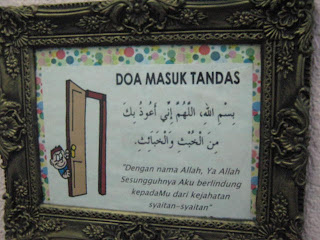 DOA MASUK TANDAS
بِسْمِ اللهِ، اللَّهُمَّ إِنِّي أَعُوْذُ بِكَ
مِنَ الْخُبْثِ وَالْخَبَائِثِ.
"Dengan nama Allah, Ya Allah
Sesungguhnya Aku berlindung
kepadaMu dari kejahatan
syaitan-syaitan"